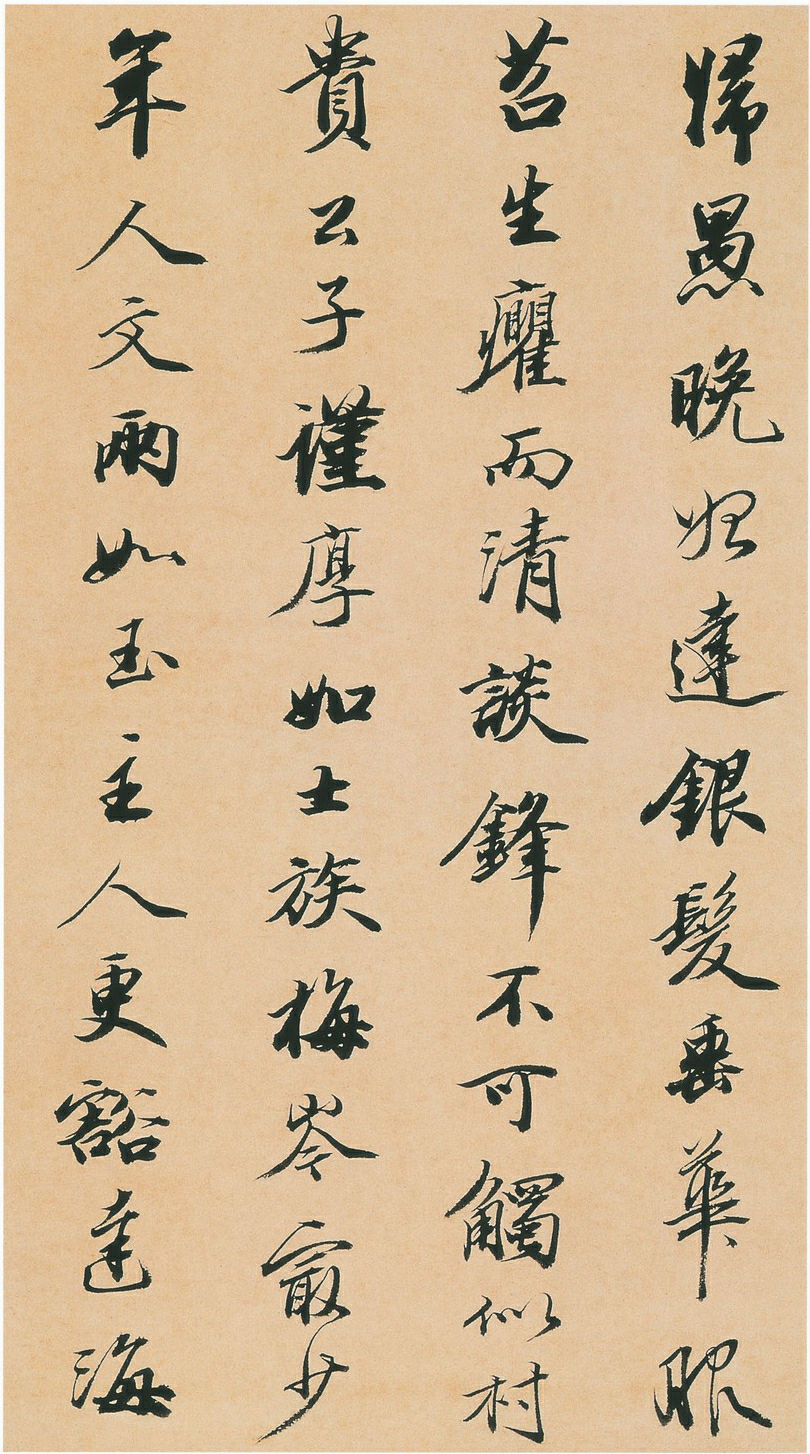 帰愚晚始達銀髮垂華服
苕生癯而清談鋒不可觸似村
貴公子謹厚如士族梅岑㝡少
年人文兩如玉主人更豁達海